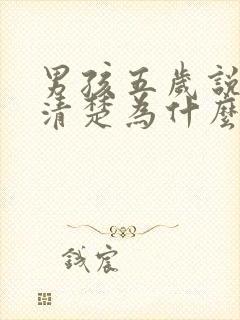 男孩五歲說
清楚為什麼
鉞宸